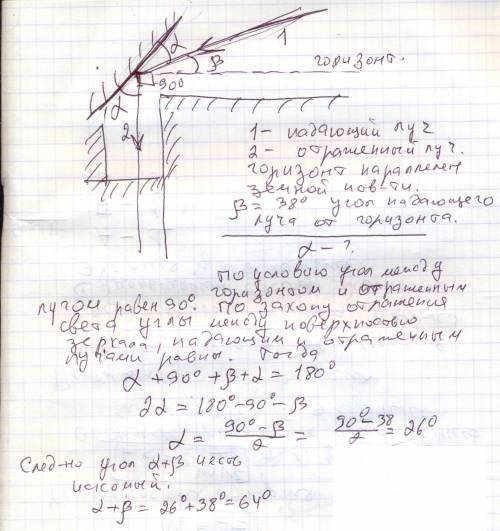 α
1
β
горизонт.
90°
α
2
1 - падающий луч
2 - отраженный луч.
горизонт параллелен
земной пов-ти.
β = 38° угол падающего
луча от горизонта.
α - ?
По условию угол между
горизонтом и отраженным
лучом равен 90°. По закону отражения
света углы между поверхностью
зеркала, падающим и отраженным
лучами равны. Тогда
α + 90° + β + α = 180°
2α = 180° - 90° - β
α = 90° - β / 2 = 90° - 38 / 2 = 26°
След-но угол α+β и есть
искомый.
α + β = 26° + 38° = 64°